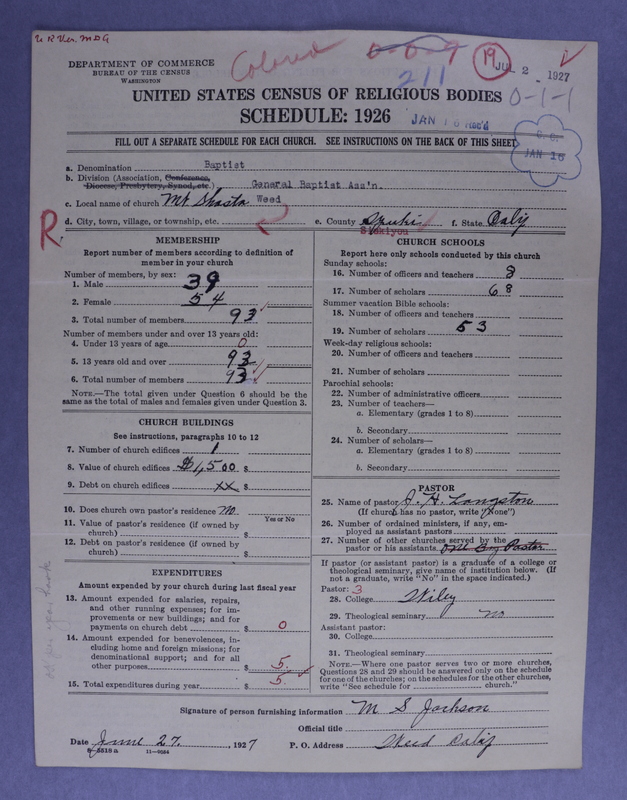 Colored
0-0-9
211
19
JUL 2 1927
0-1-1
DEPARTMENT OF COMMERCE
BUREAU OF THE CENSUS
WASHINGTON
UNITED STATES CENSUS OF RELIGIOUS BODIES
SCHEDULE: 1926
JAN 16
FILL OUT A SEPARATE SCHEDULE FOR EACH CHURCH. SEE INSTRUCTIONS ON THE BACK OF THIS SHEET
JAN 16
a. Denomination Baptist
b. Division (Association, Conference,
Diocese, Presbytery, Synod, etc.) General Baptist Ass'n.
c. Local name of church Mt Shasta Weed
R
d. City, town, village, or township, etc. e. County Siskiyou f. State Calif
MEMBERSHIP
Report number of members according to definition of
member in your church
Number of members, by sex:
1. Male 39
2. Female 54
3. Total number of members 93
Number of members under and over 13 years old:
4. Under 13 years of age 0
5. 13 years old and over 93
6. Total number of members 93
NOTE.—The total given under Question 6 should be the
same as the total of males and females given under Question 3.
CHURCH BUILDINGS
See instructions, paragraphs 10 to 12
7. Number of church edifices 1
8. Value of church edifices $1,500 $
9. Debt on church edifices xx $
10. Does church own pastor's residence No
Yes or No
11. Value of pastor's residence (if owned by
church) $
12. Debt on pastor's residence (if owned by
church) $
EXPENDITURES
Amount expended by your church during last fiscal year
13. Amount expended for salaries, repairs,
and other running expenses; for im-
provements or new buildings; and for
payments on church debt $ 0
14. Amount expended for benevolences, in-
cluding home and foreign missions; for
denominational support; and for all
other purposes $ 5.
15. Total expenditures during year $ 5.
CHURCH SCHOOLS
Report here only schools conducted by this church
Sunday schools:
16. Number of officers and teachers 8
17. Number of scholars 68
Summer vacation Bible schools:
18. Number of officers and teachers
19. Number of scholars 53
Week-day religious schools:
20. Number of officers and teachers
21. Number of scholars
Parochial schools:
22. Number of administrative officers
23. Number of teachers—
a. Elementary (grades 1 to 8)
b. Secondary
24. Number of scholars—
a. Elementary (grades 1 to 8)
b. Secondary
PASTOR
25. Name of pastor J. H. Langston
(If church has no pastor, write "None")
26. Number of ordained ministers, if any, em-
ployed as assistant pastors
27. Number of other churches served by the
pastor or his assistants One By Pastor
If pastor (or assistant pastor) is a graduate of a college or
theological seminary, give name of institution below. (If
not a graduate, write "No" in the space indicated.)
Pastor: 3
28. College Wiley
29. Theological seminary no
Assistant pastor:
30. College
31. Theological seminary
NOTE.—Where one pastor serves two or more churches,
Questions 28 and 29 should be answered only on the schedule
for one of the churches; on the schedules for the other churches,
write "See schedule for church."
Signature of person furnishing information M S Jackson
Official title
Date June 27, 1927 P. O. Address Weed Calif
8-5518a 11-9054